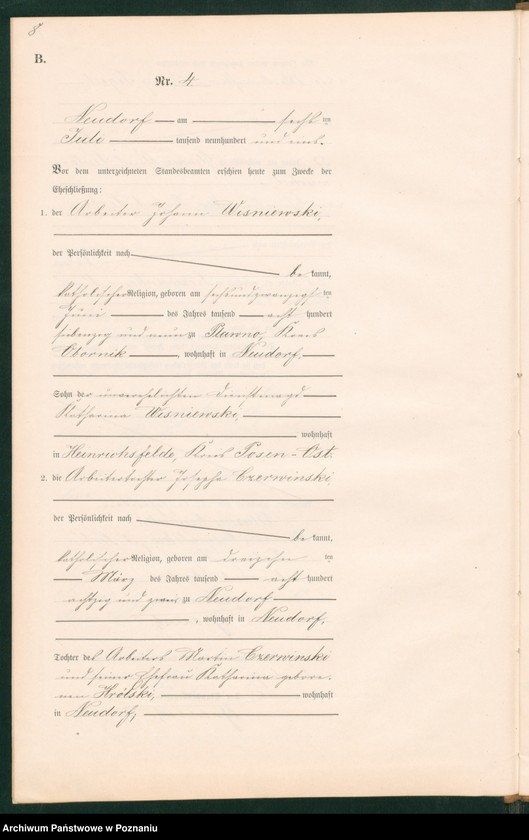 8
B.
Nr. 4
Neudorf am sechsten
Juli tausend neunhundert und eins.
Vor dem unterzeichneten Standesbeamten erschien heute zum Zwecke der
Eheschließung:
1. der Arbeiter Johann Wisniewski,
der Persönlichkeit nach
bekannt,
katholischer Religion, geboren am sechsundzwanzigsten
Juni des Jahres tausend acht hundert
siebenzig und neun zu Plawno, Kreis
Obornik, wohnhaft in Neudorf.
Sohn der unverehelichten Dienstmagd
Katharina Wisniewski,
wohnhaft
in Heinrichsfelde, Kreis Posen-Ost.
2. die Arbeitertochter Josepha Czerwinski
der Persönlichkeit nach
bekannt,
katholischer Religion, geboren am dreizehnten
März des Jahres tausend acht hundert
achtzig und zwei zu Neudorf
, wohnhaft in Neudorf.
Tochter des Arbeiters Martin Czerwinski
und seiner Ehefrau Katharina gebore-
nen wohnhaft
in Neudorf,
Archiwum Państwowe w Poznaniu